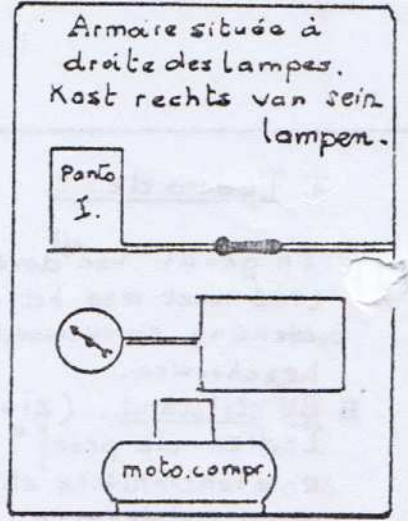 Armoire située à
droite des lampes.
Kast rechts van sein
lampen.
Panto
I.
moto.compr.